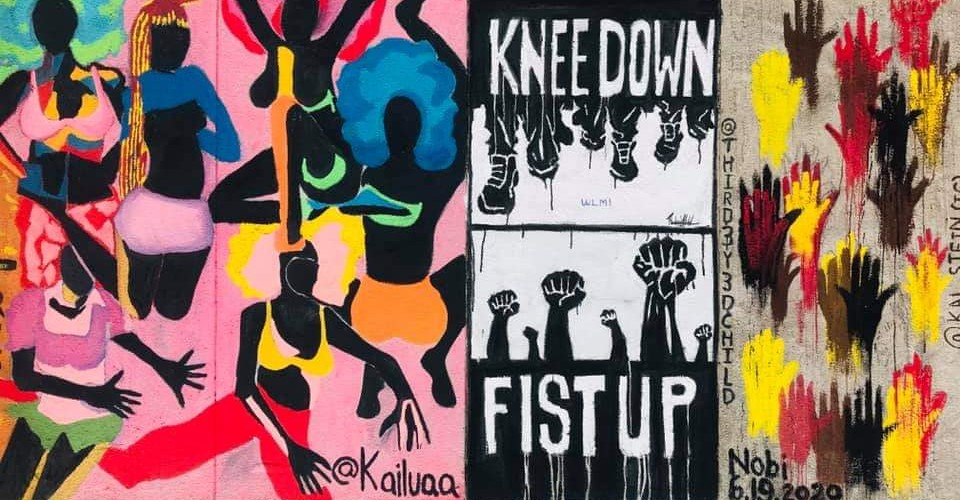 @Kailuaa
KNEE DOWN
WLM!
FIST UP
@THIRD3Y3DCHILD
Nobi
6.19.2020
@KAI_STEIN